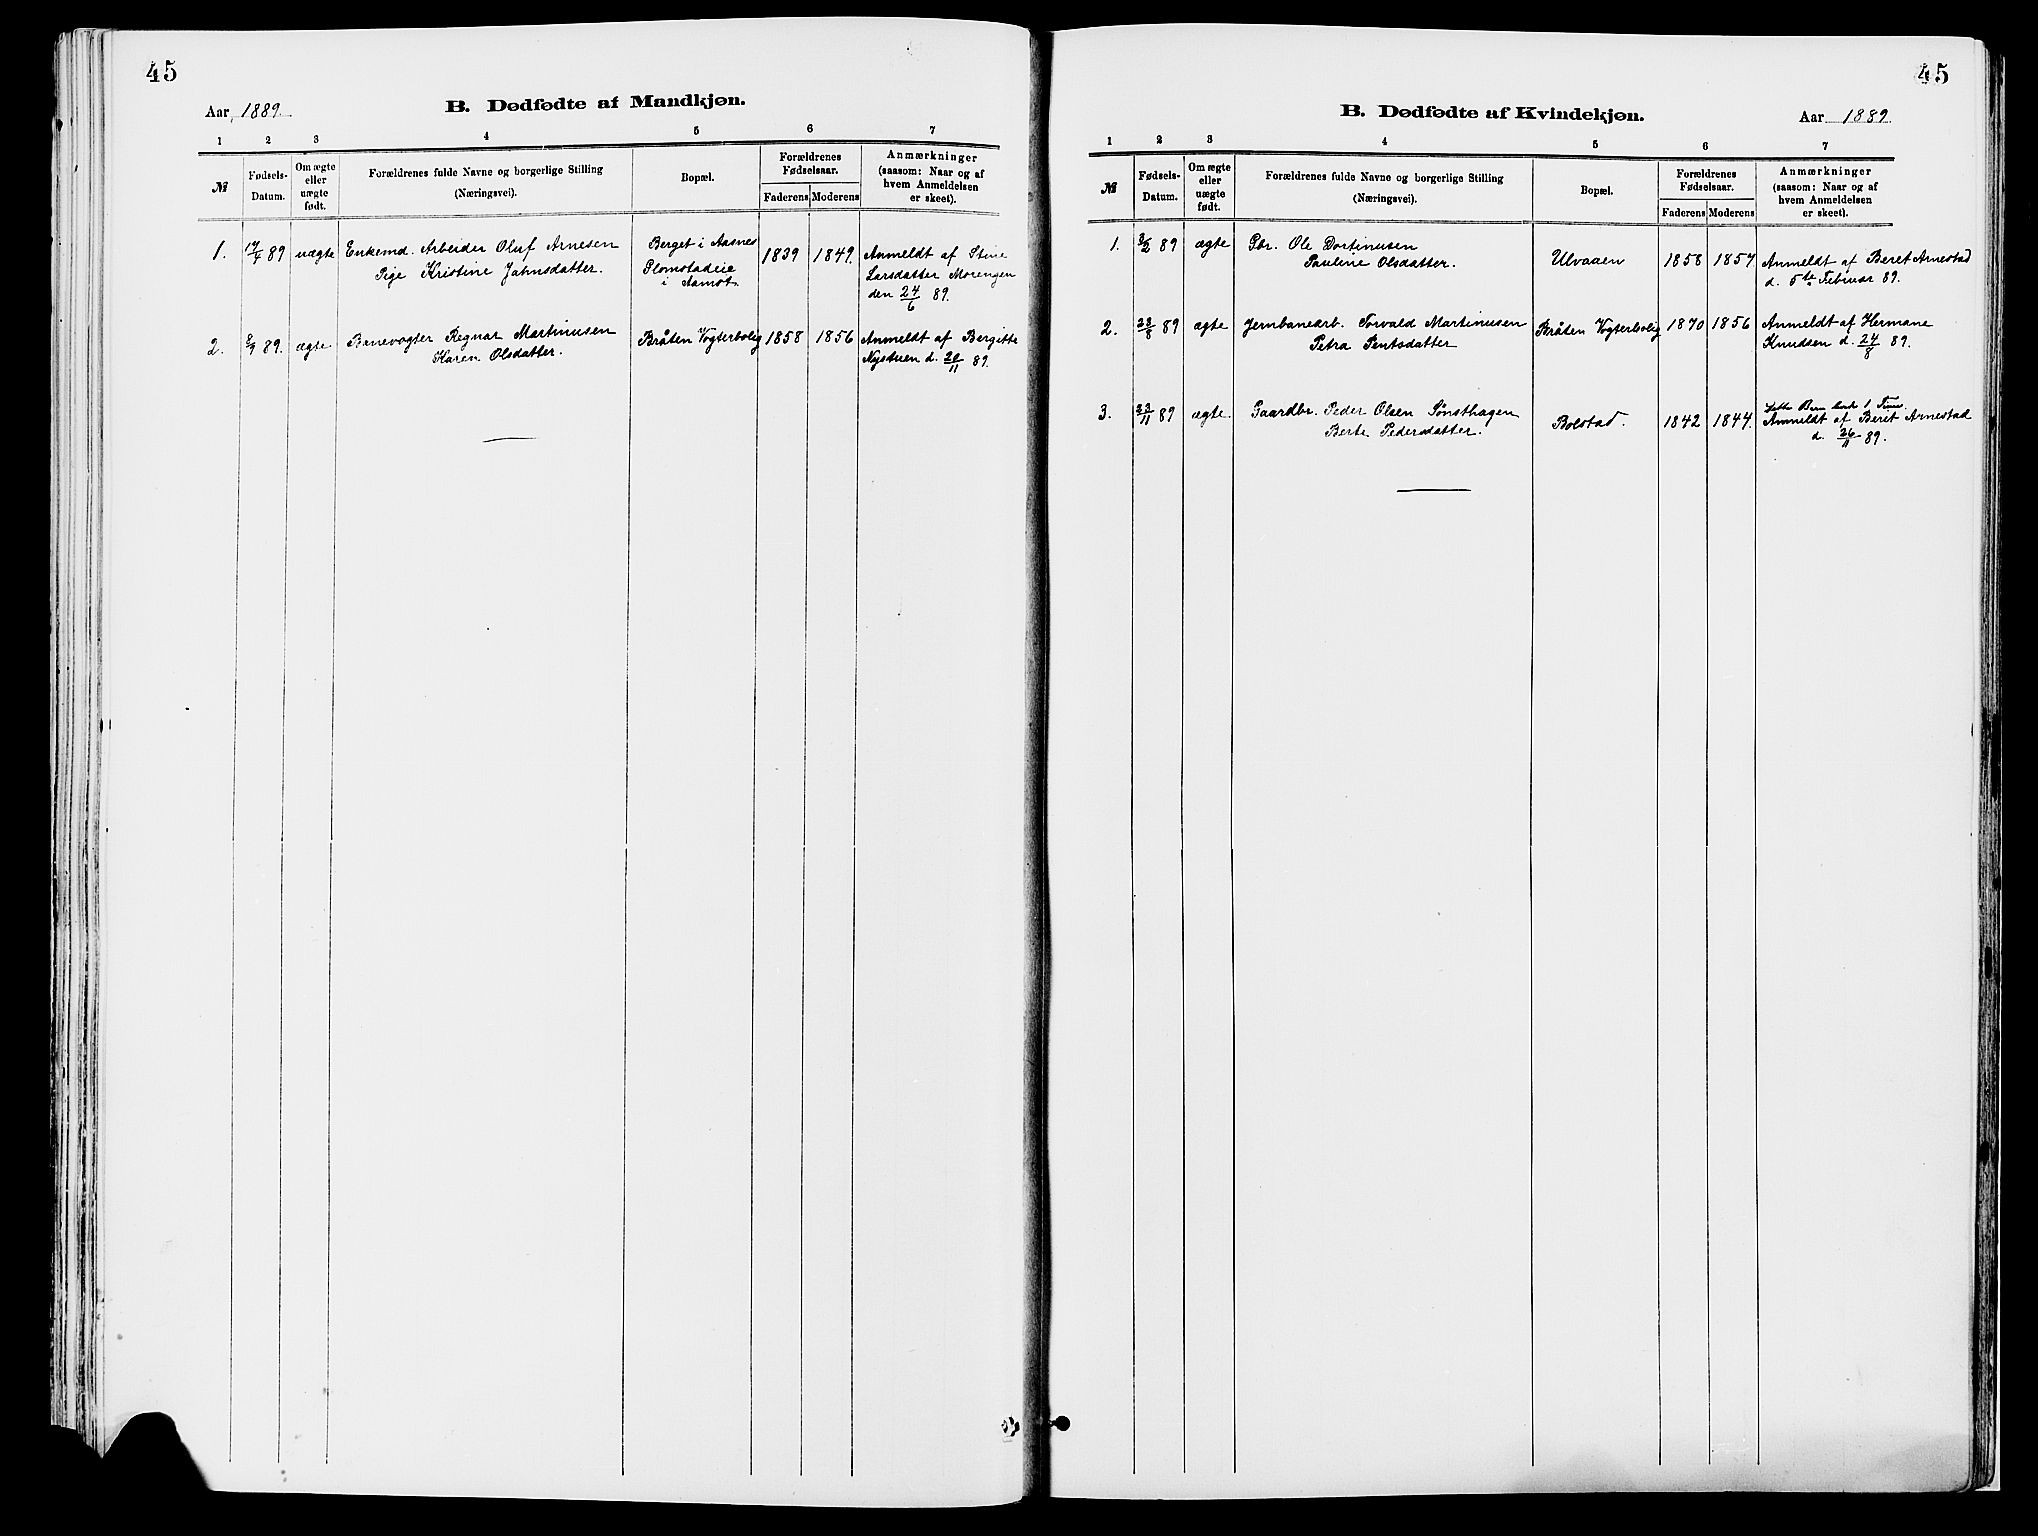 45
Aar 1889.
B. Dødfødte af Mandkjøn.
1 2 3 4 5 6 7
№
Fødsels-
Datum.
Om ægte
eller
uægte
født.
Forældrenes fulde Navne og borgerlige Stilling
(Næringsvei).
Bopæl.
Forældrenes
Fødselsaar.
Faderens Moderens
Anmærkninger
(saasom: Naar og af
hvem Anmeldelsen
er skeet).
1. 17/4 89 uægte Enkemd. Arbeider Oluf Arnesen
Pige Kristine Jahnsdatter.
Berget i Aasnes
Plomstadeie
i Aamot.
1839 1849.
Anmeldt af Stine
Larsdatter Morengen
den 24/6 89.
2. 89. ægte Banevogter Regnar Martinusen
Karen Olsdatter.
Bråten Vogterbolig 1858 1856
Anmeldt af Bergitte
Nystuen d. 20/11 89.
45
B. Dødfødte af Kvindekjøn.
Aar 1889.
1 2 3 4 5 6 7
№
Fødsels-
Datum.
Om ægte
eller
uægte
født.
Forældrenes fulde Navne og borgerlige Stilling
(Næringsvei).
Bopæl.
Forældrenes
Fødselsaar.
Faderens Moderens
Anmærkninger
(saasom: Naar og af
hvem Anmeldelsen
er skeet).
1. 3/2 89 ægte Gbr. Ole Dortinusen
Pauline Olsdatter.
Ulvaaen 1858 1857
Anmeldt af Beret Arnestad
d. 5te Februar 89.
2. 23/8 89 ægte Jernbanearb. Torvald Martinusen
Petra Bentsdatter
Bråten Vogterbolig 1870 1856
Anmeldt af Hermane
Knudsen d. 24/8 89.
3. 23/11 89 ægte. Gaardbr. Peder Olsen Sønsthagen
Berte Pedersdatter.
Bolstad. 1842 1844.
Dette Barn 1 Time
Anmeldt af Beret Arnestad
d. 26/11 89.